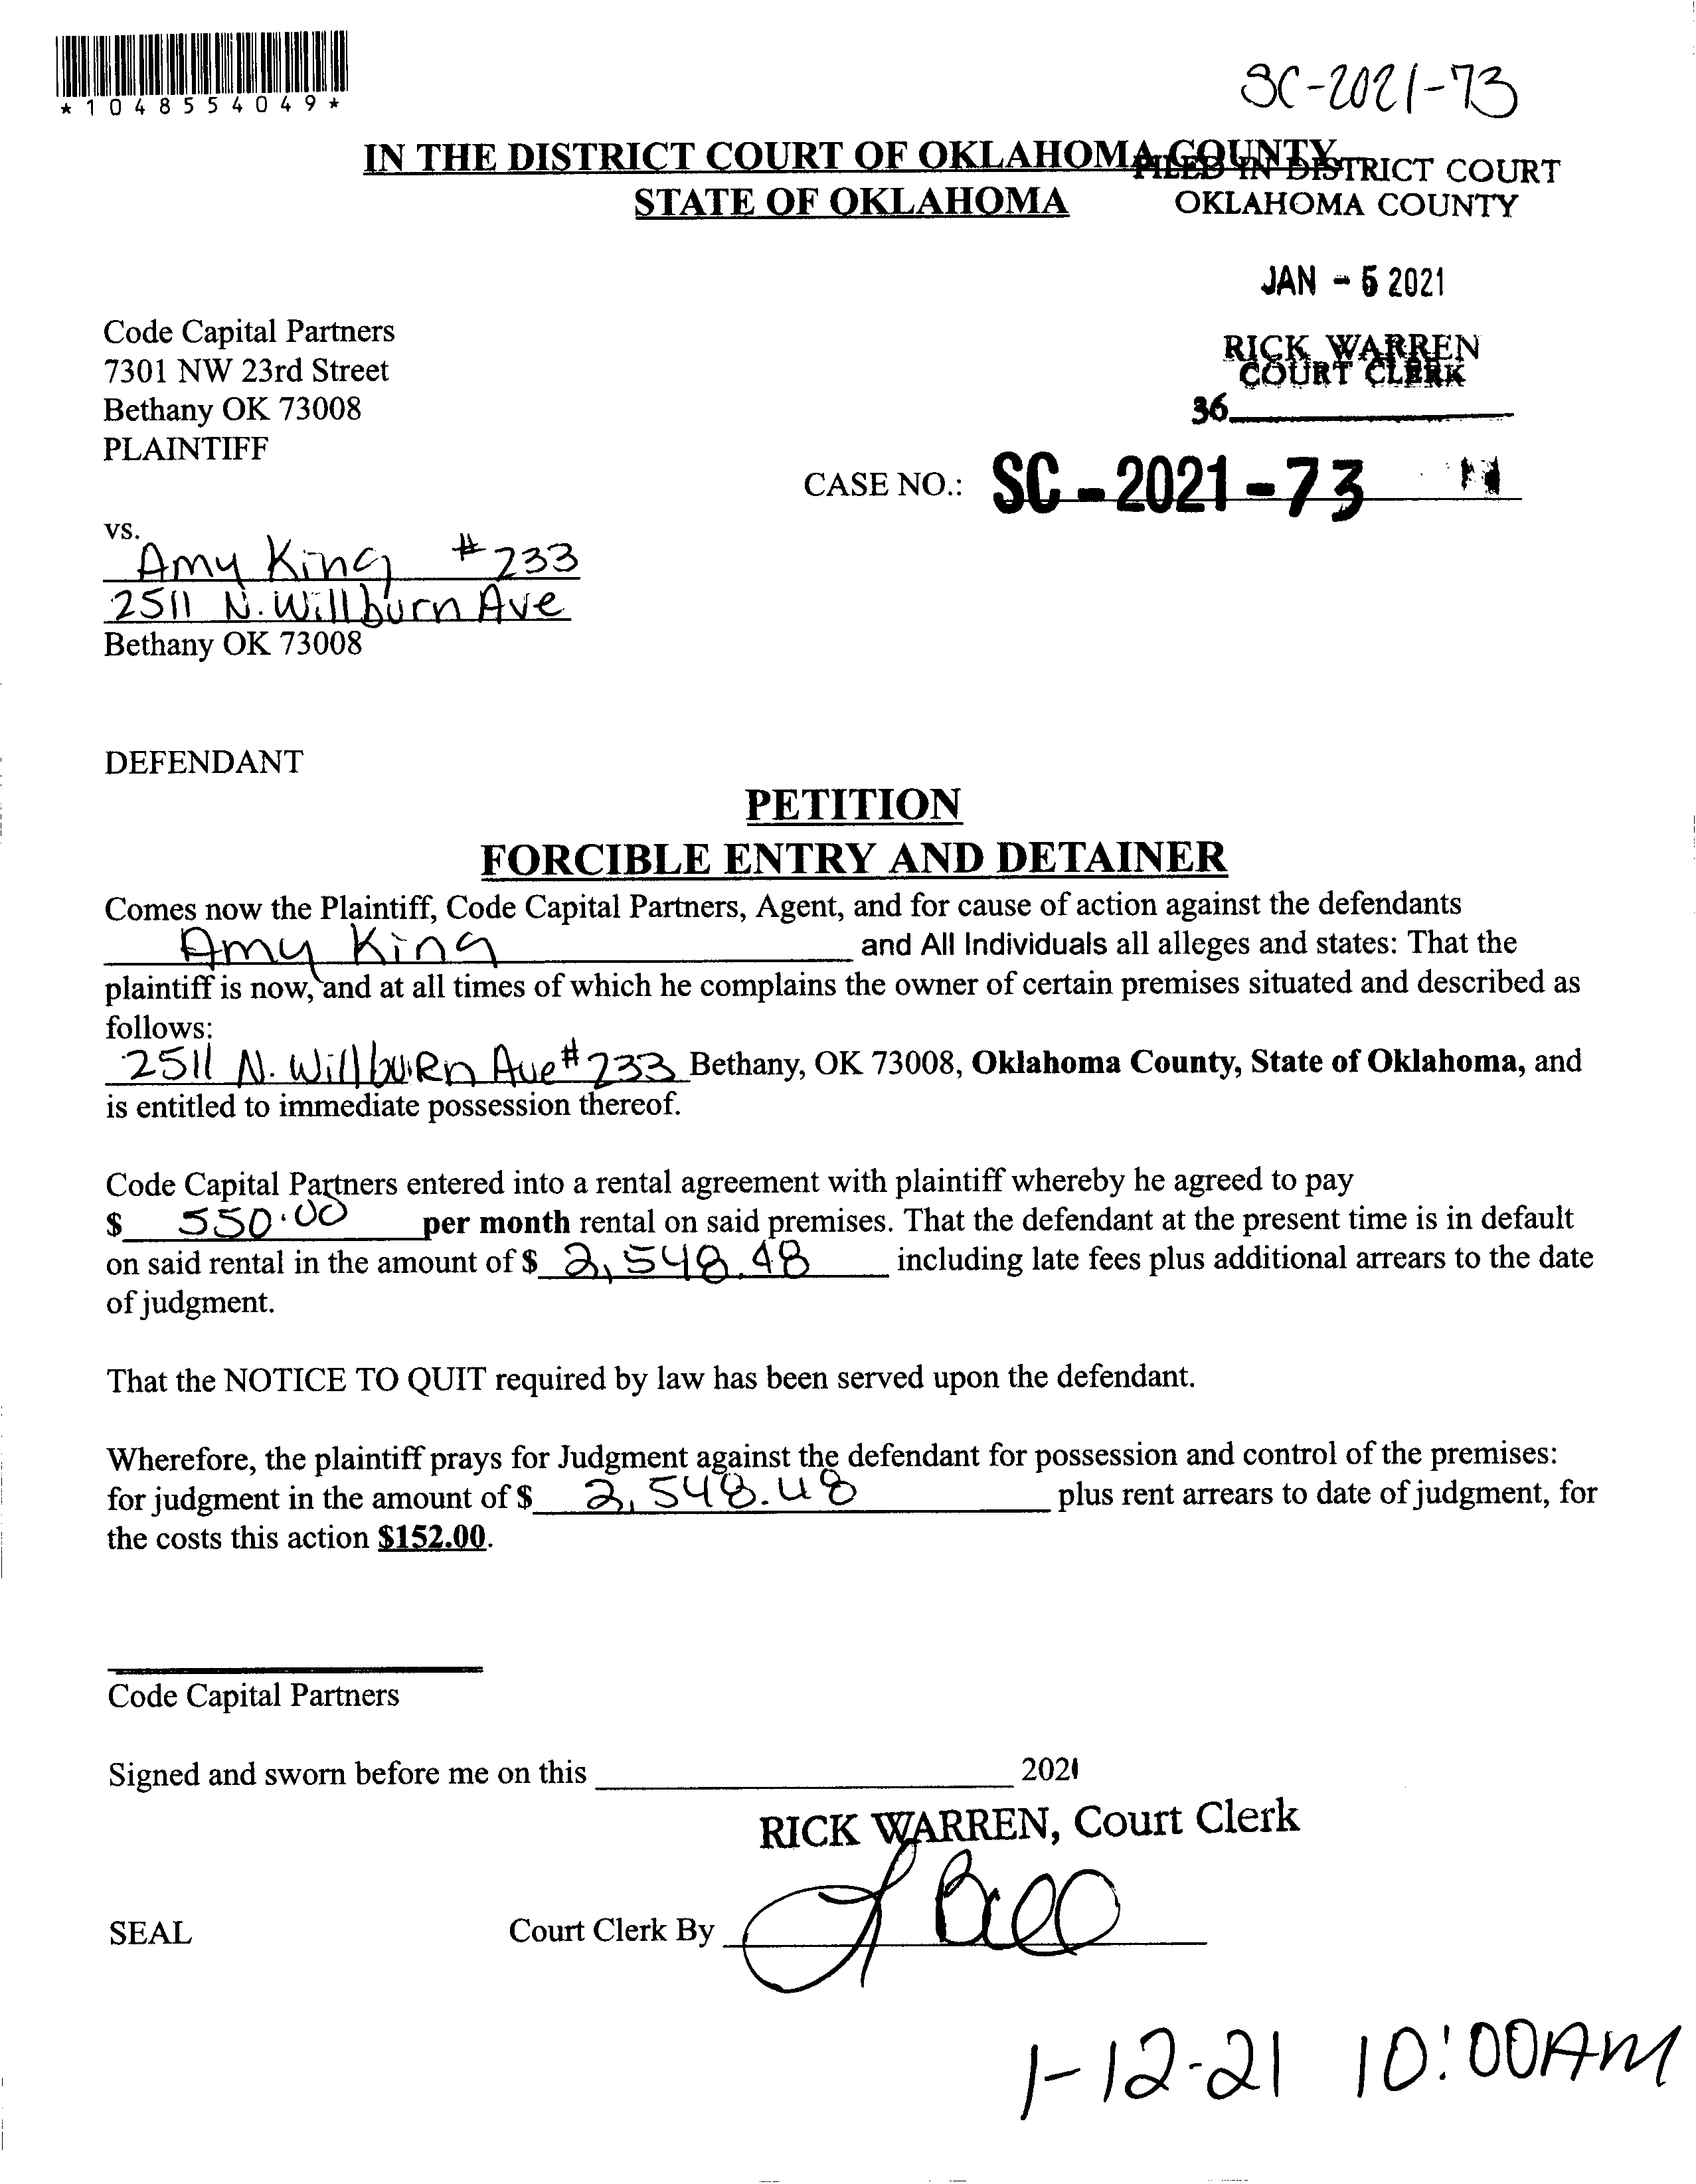 *1048554049*
SC-2021-73
IN THE DISTRICT COURT OF OKLAHOMA COUNTY
STATE OF OKLAHOMA
FILED IN DISTRICT COURT
OKLAHOMA COUNTY
JAN - 5 2021
RICK WARREN
COURT CLERK
36
Code Capital Partners
7301 NW 23rd Street
Bethany OK 73008
PLAINTIFF
CASE NO.: SC-2021-73
vs.
Amy King #233
2511 N. Willburn Ave
Bethany OK 73008
DEFENDANT
PETITION
FORCIBLE ENTRY AND DETAINER
Comes now the Plaintiff, Code Capital Partners, Agent, and for cause of action against the defendants
Amy King and All Individuals all alleges and states: That the
plaintiff is now, and at all times of which he complains the owner of certain premises situated and described as
follows:
2511 N. Willburn Ave #233 Bethany, OK 73008, Oklahoma County, State of Oklahoma, and
is entitled to immediate possession thereof.
Code Capital Partners entered into a rental agreement with plaintiff whereby he agreed to pay
$ 550.00 per month rental on said premises. That the defendant at the present time is in default
on said rental in the amount of $ 2,548.48 including late fees plus additional arrears to the date
of judgment.
That the NOTICE TO QUIT required by law has been served upon the defendant.
Wherefore, the plaintiff prays for Judgment against the defendant for possession and control of the premises:
for judgment in the amount of $ 2,548.48 plus rent arrears to date of judgment, for
the costs this action $152.00.
Code Capital Partners
Signed and sworn before me on this 2021
RICK WARREN, Court Clerk
SEAL Court Clerk By
1-12-21 10:00AM